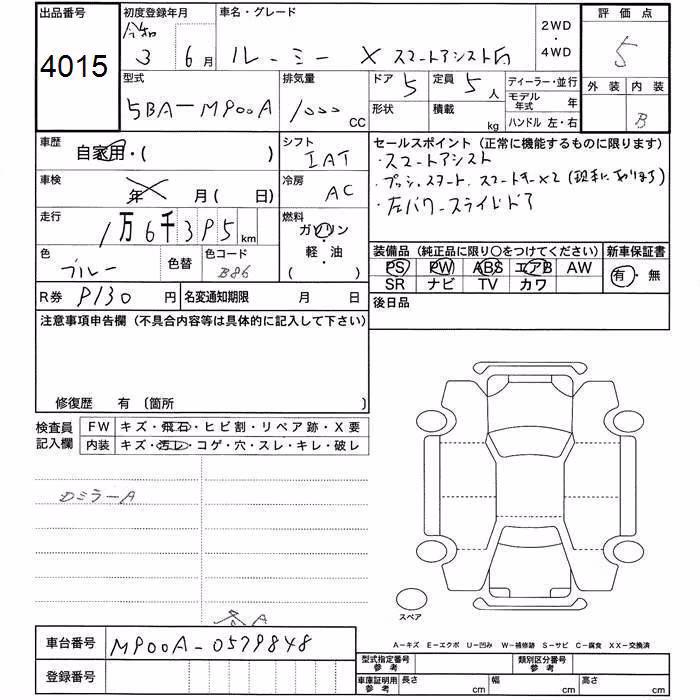 出品番号 初度登録年月 車名・グレード 2WD・4WD 評価点
4015 令和 3年 6月 ルーミー X スマートアシスト 5
型式 排気量 ドア 5 定員 5人 ディーラー・並行 外装 内装
5BA-M900A 1000 CC 形状 積載 kg モデル年式 年 B
ハンドル 左・右
車歴 自家用・( ) シフト IAT セールスポイント(正常に機能するものに限ります)
・スマートアシスト
車検 年 月( 日) 冷房 AC ・プッシュスタート スマートキー×2(現車にあります)
・左パワースライドドア
走行 1万6千395km 燃料 ガソリン・軽油( )
色 ブルー 色替 色コード B86
装備品(純正品に限り○をつけてください) 新車保証書
PS PW ABS エアB AW 有・無
SR ナビ TV カワ
R券 9130円 名変通知期限 月 日 後日品
注意事項申告欄(不具合内容等は具体的に記入して下さい)
修復歴 有〔箇所 〕
検査員記入欄 FW キズ・飛石・ヒビ割・リペア跡・X要
内装 キズ・汚レ・コゲ・穴・スレ・キレ・破レ
ミラーA
A
スペア
車台番号 M900A-0579848
A-キズ E-エクボ U-凹み W-補修跡 S-サビ C-腐食 XX-交換済
型式指定番号参考 類別区分番号参考
登録番号
車庫証明用参考 長さ cm 幅 cm 高さ cm